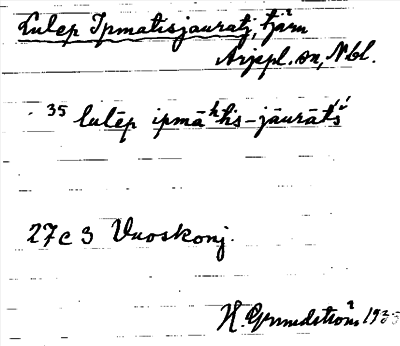 Lulep Ipmatisjauratj, tjärn
Arjepl. sn, Nbl.
35 lulēp ipmāʰtis-jāurāt́ś
27c 3 Vuoskonj.
H. Grundström